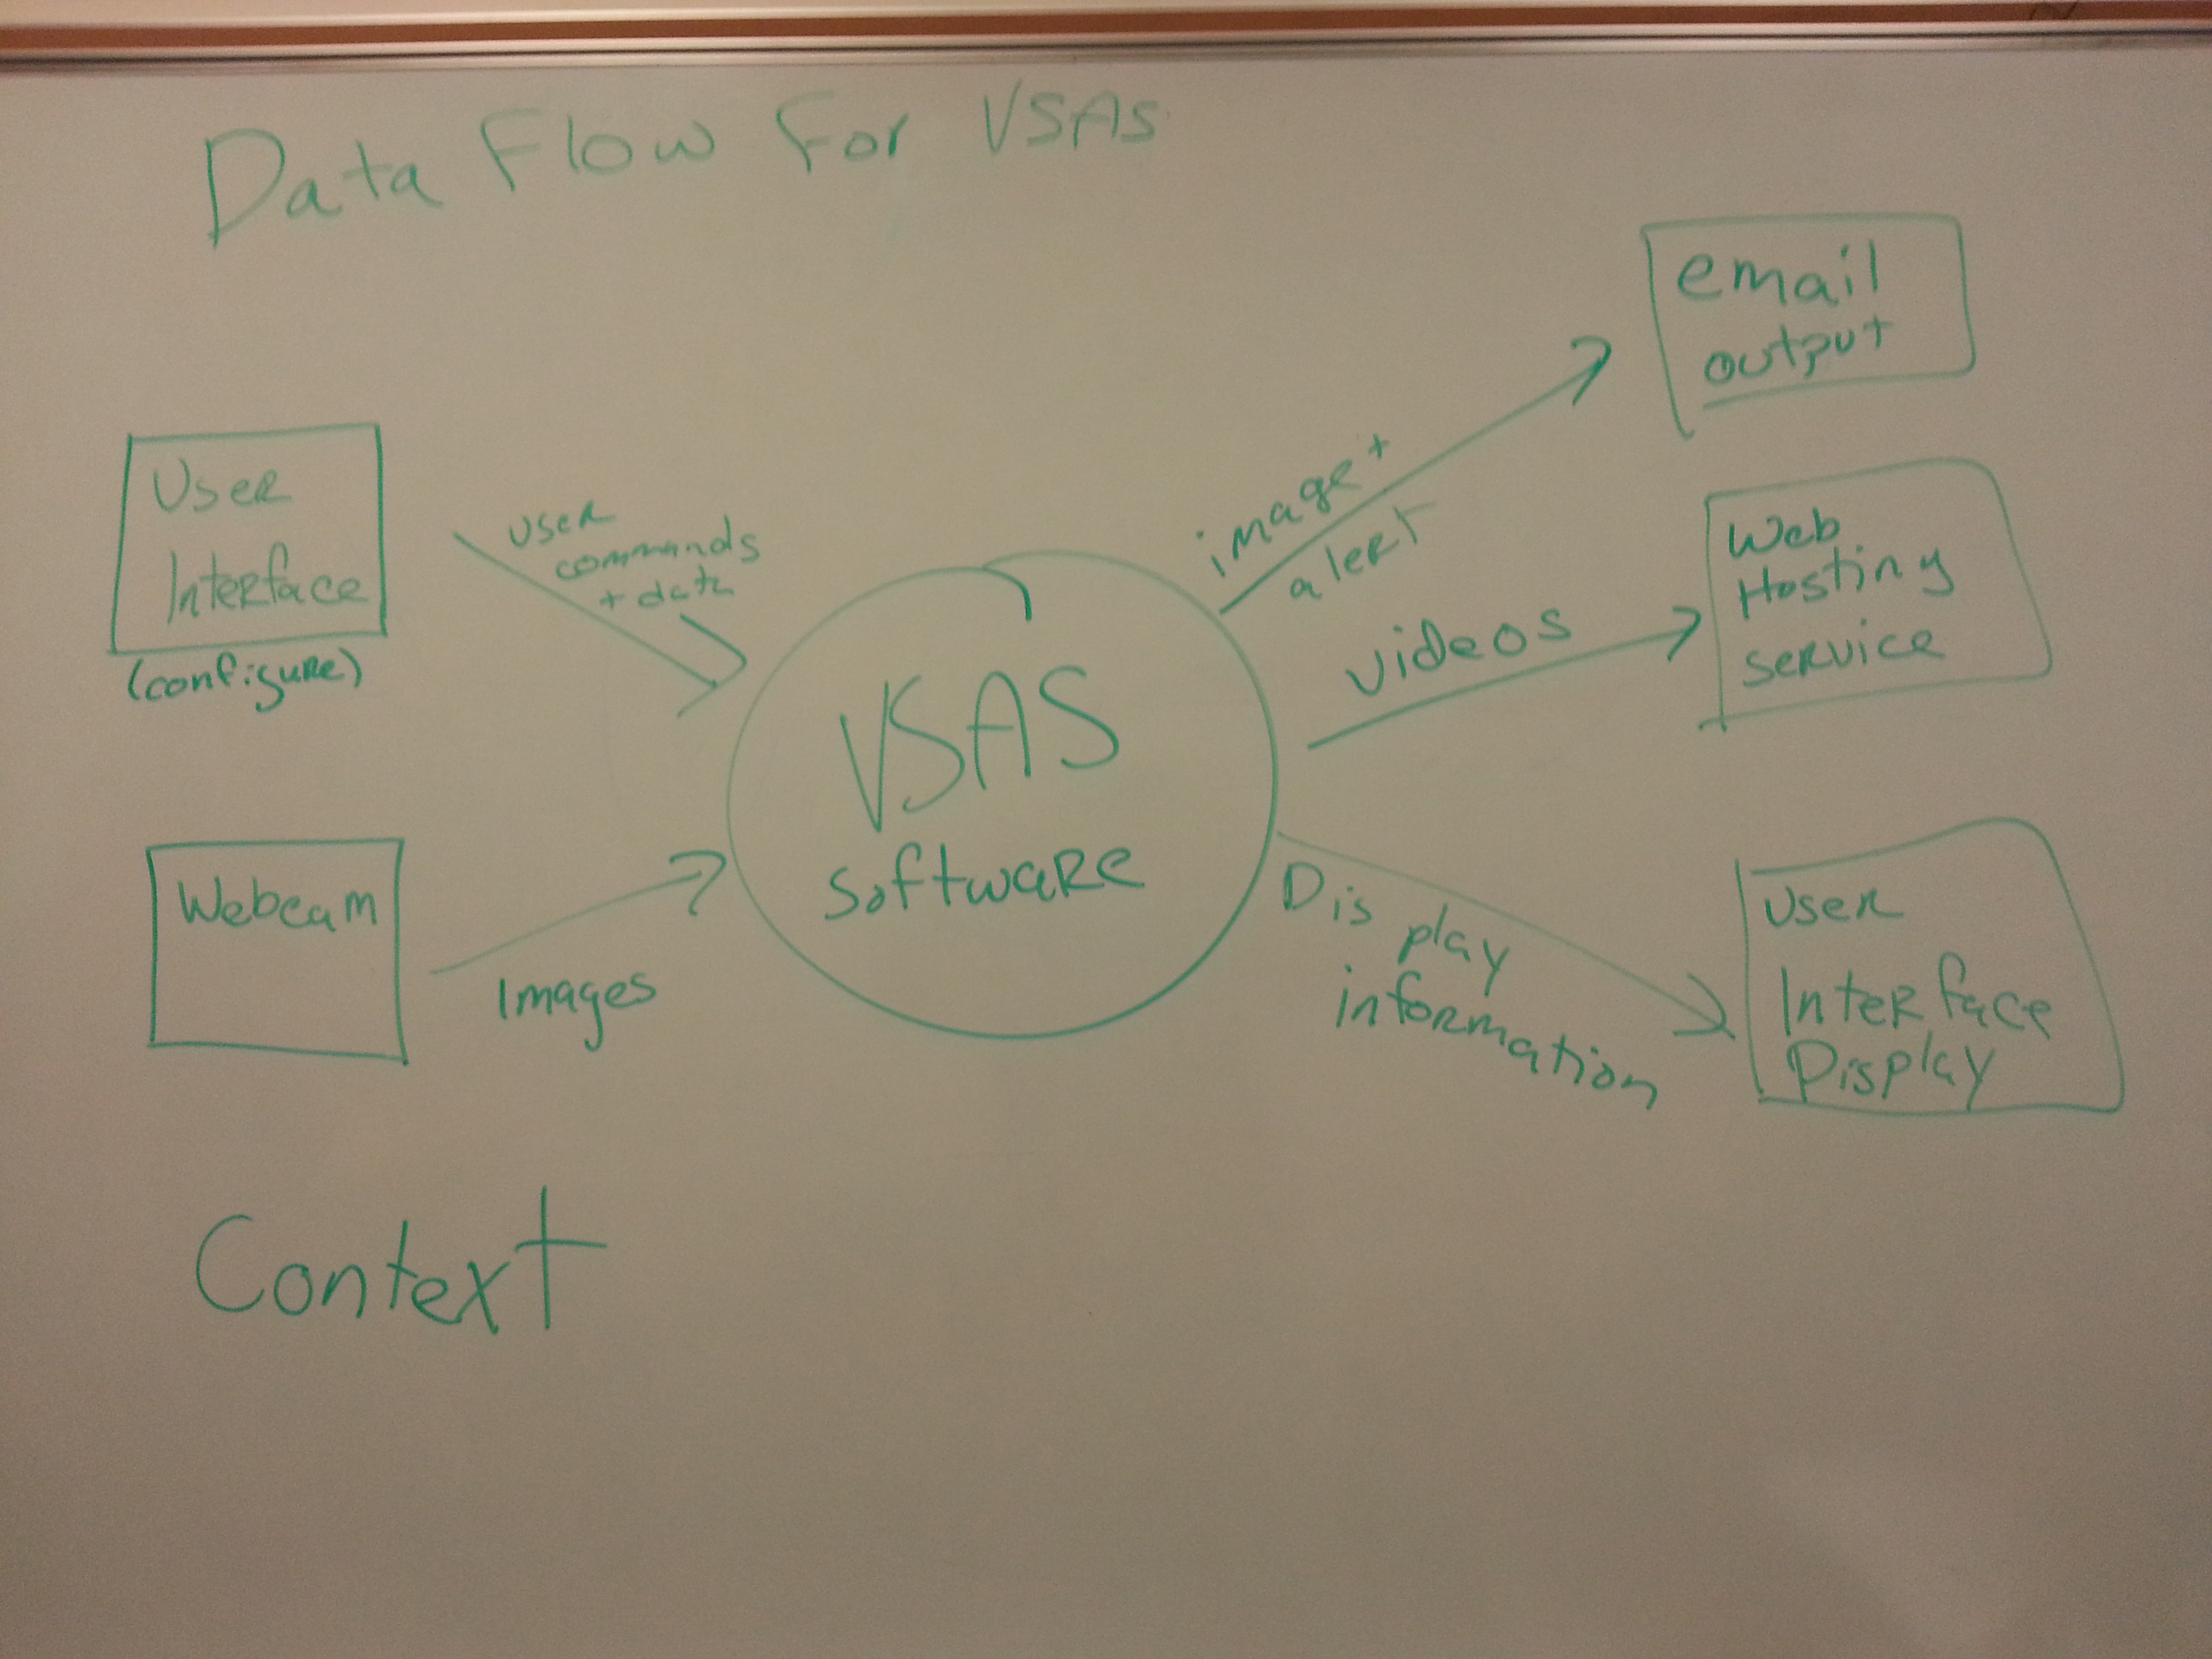 Data Flow For VSAS
User
Interface
(configure)
user
commands
+ data
Webcam
Images
VSAS
Software
image +
alert
email
output
videos
Web
Hosting
service
Display
information
User
Interface
Display
Context